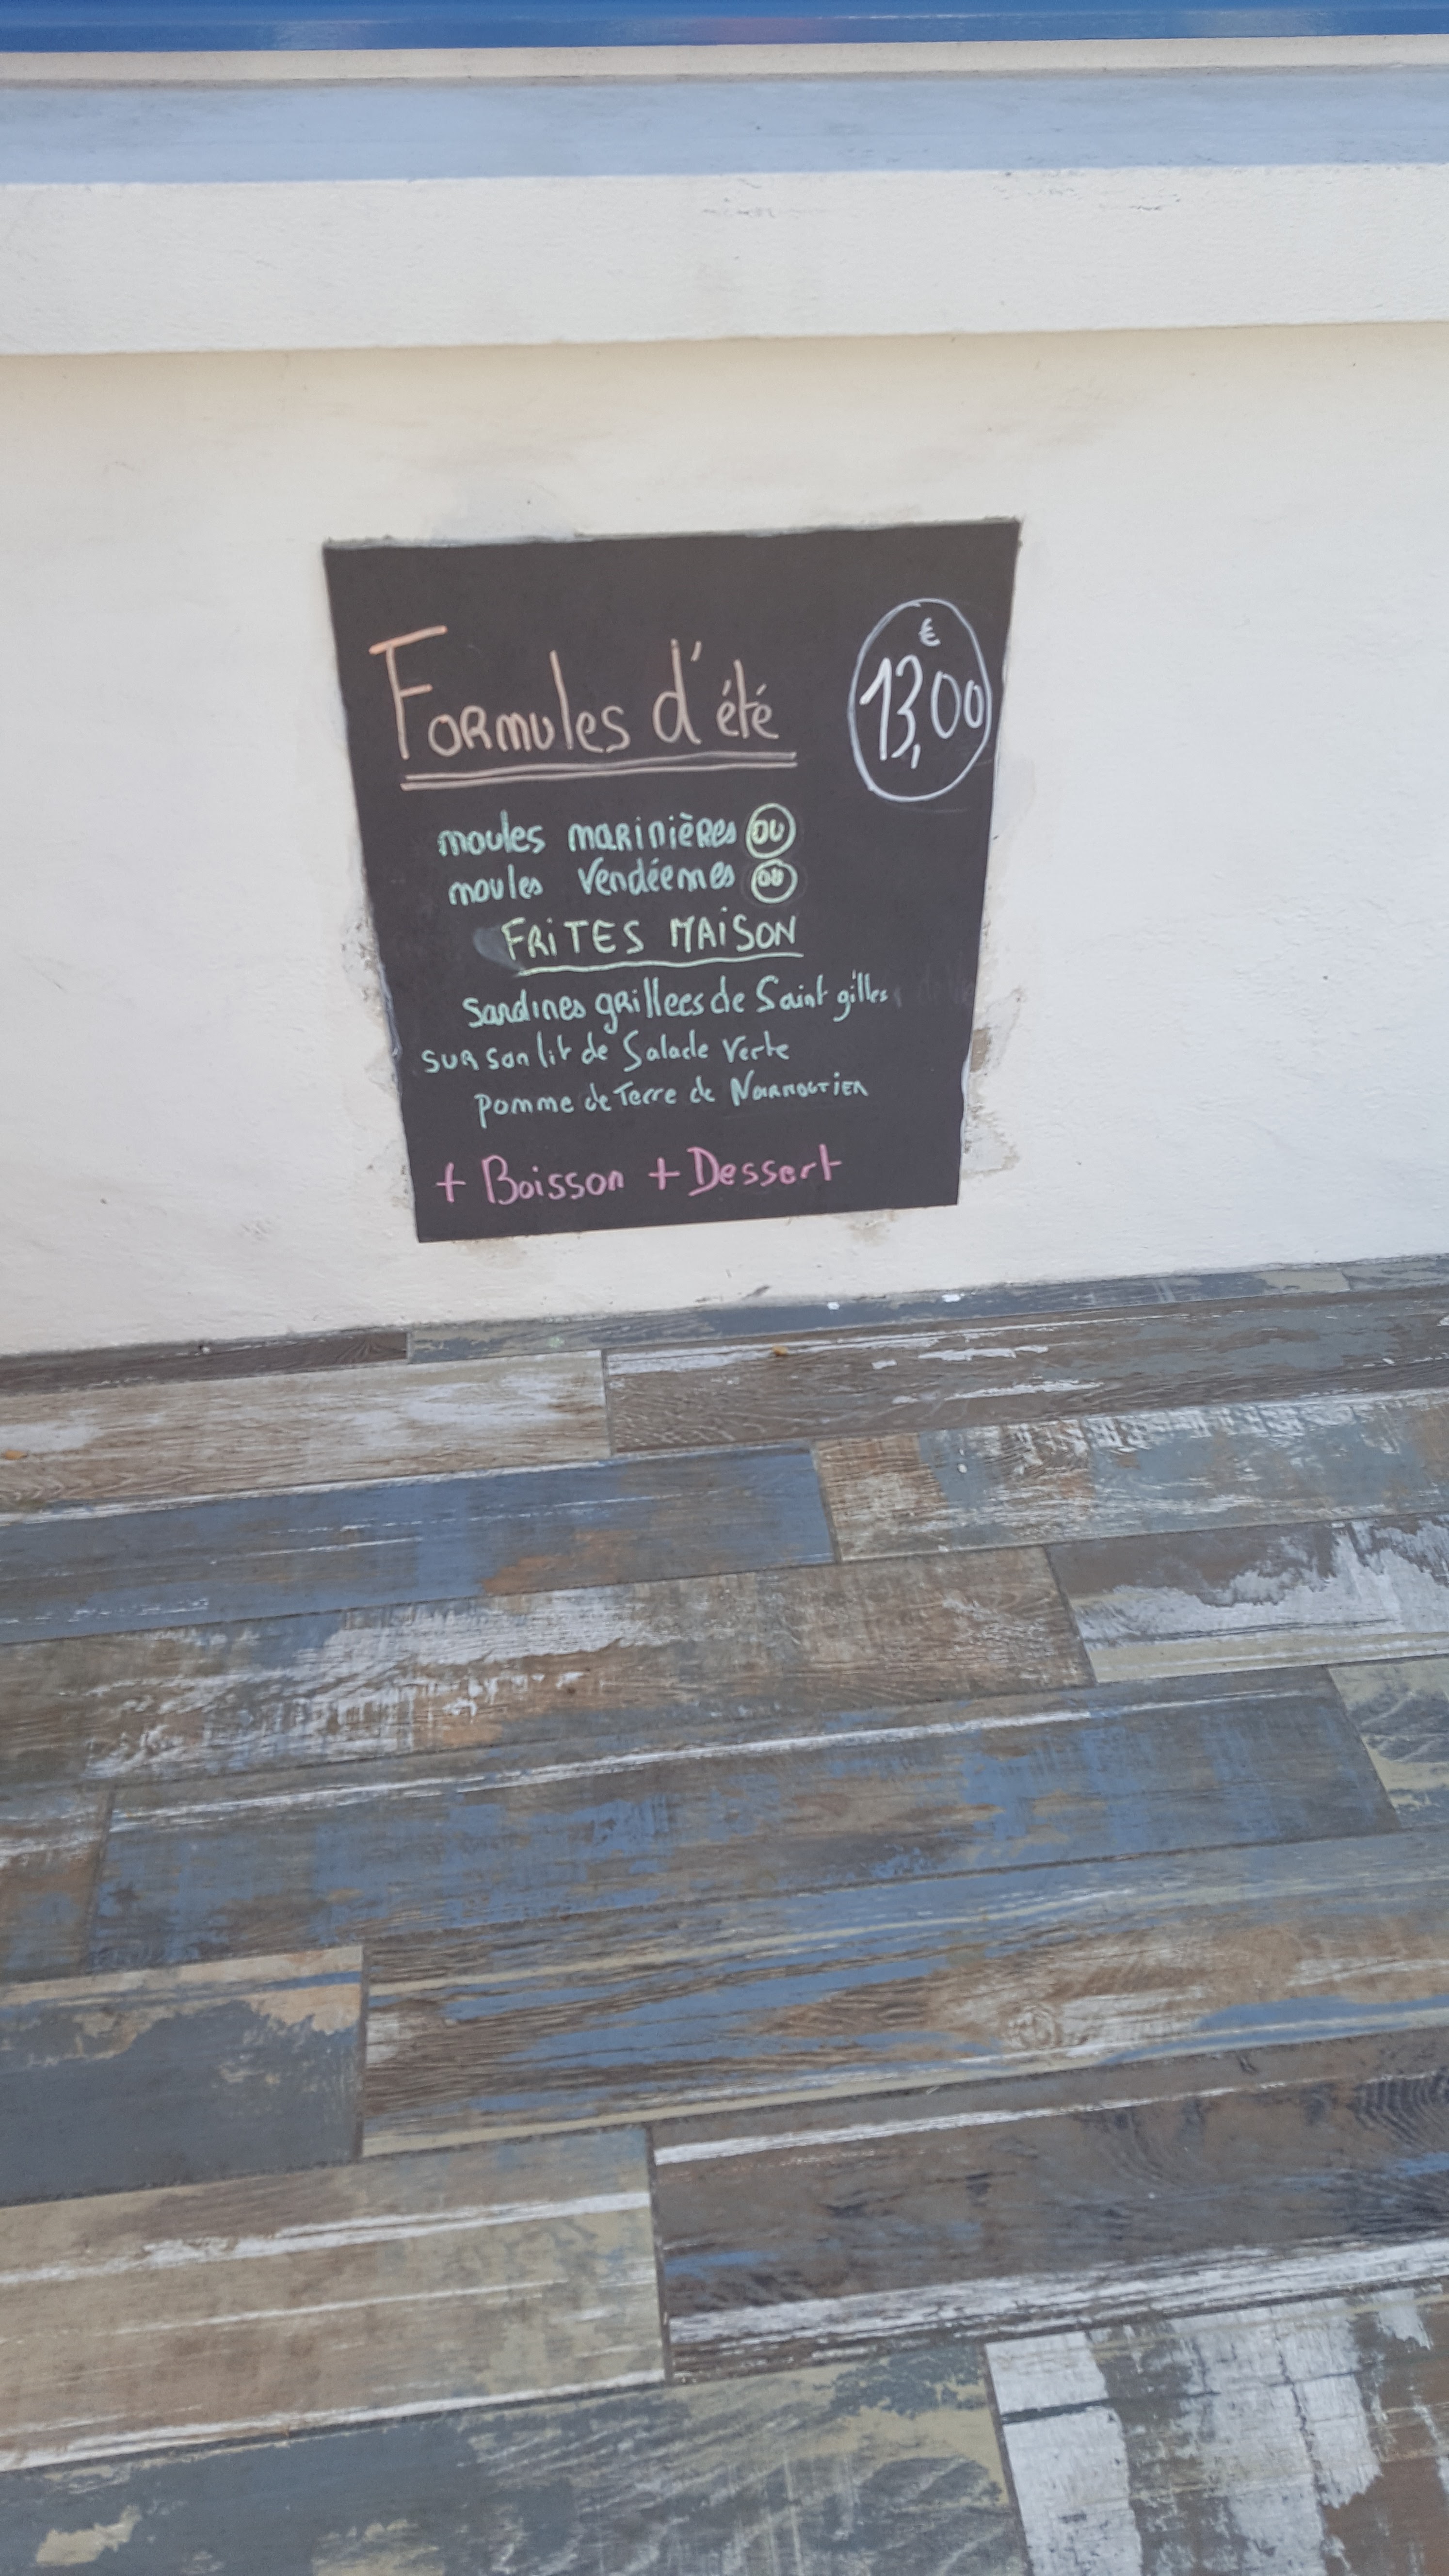 Formules d'été
€
13,00
moules marinières OU
moules Vendéennes OU
FRITES MAISON
Sardines grillees de Saint gilles
SUR son lit de Salade Verte
pomme de Terre de NOIRMOUTIER
+ Boisson + Dessert